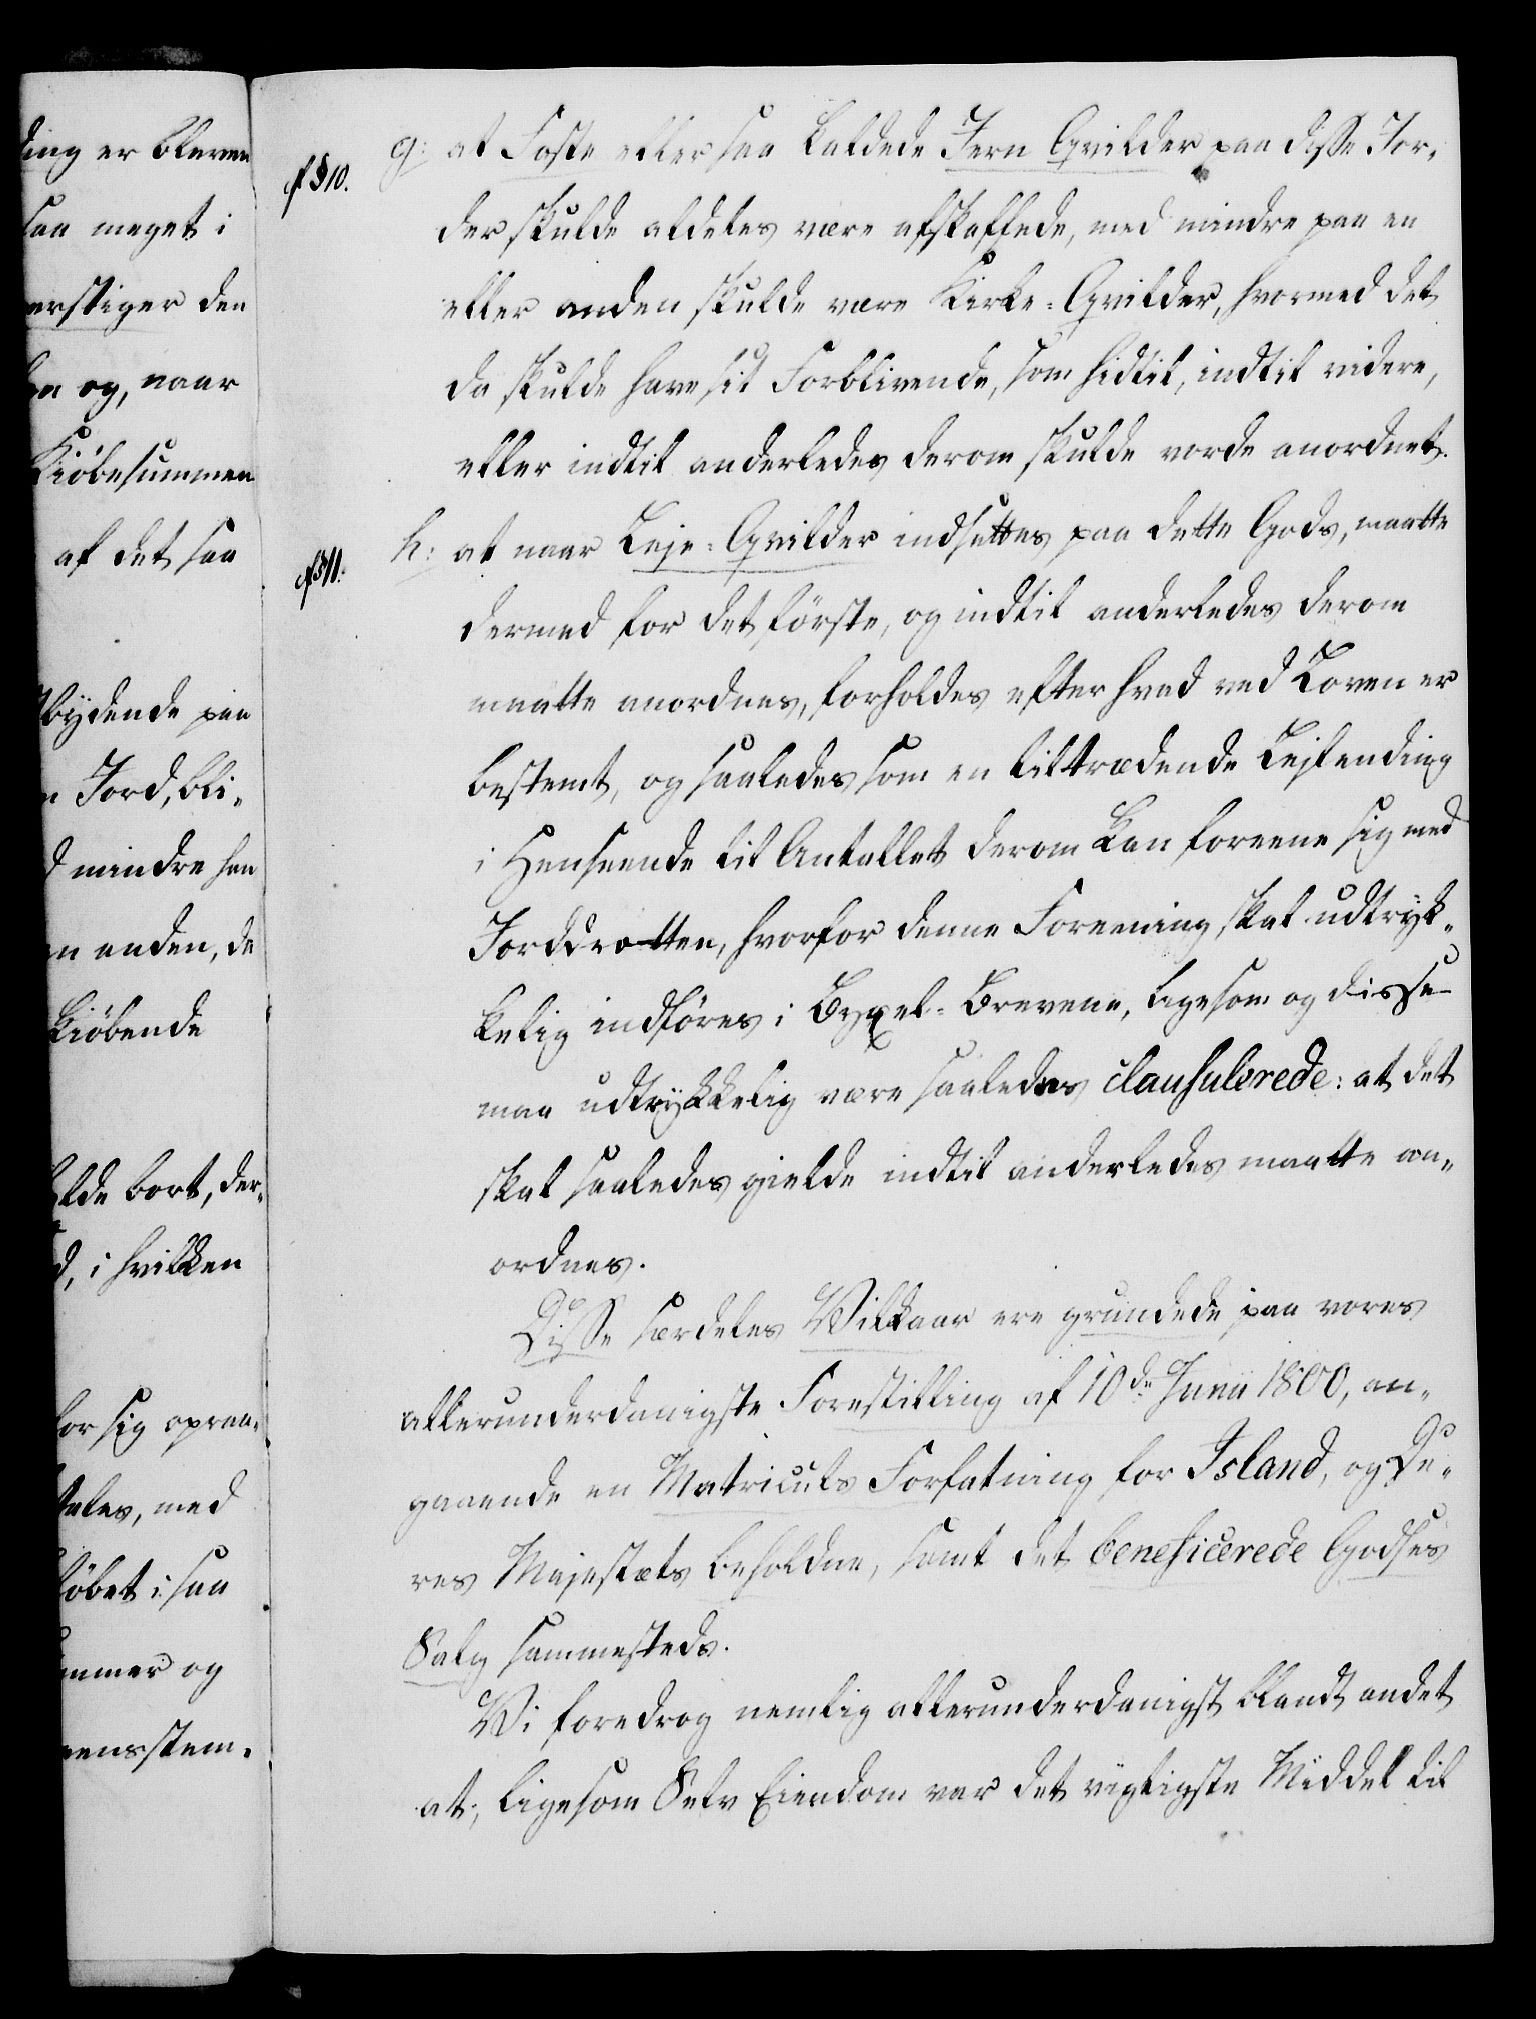 ding er bleven
saa meget i
erstiger den
og, naar
Kiöbesummen
af det saa
bydende paa
Jord, bli-
mindre han
en anden, de
kiöbende
lde bort, der-
i hvilken
for sig opraa-
tales, med
löbet i saa
ummer og
eensstem-
cf § 10.
g: at Faste eller saa kaldede Jern Qvilder paa disse Jor-
der skulde aldeles være afskaffede, med mindre paa en
eller anden skulde være Kirke-Qvilder, hvormed det
da skulde have sit Forblivende, som hidtil, indtil videre,
eller indtil anderledes derom skulde vorde anordnet.
cf § 11.
h: at naar Leje-Qvilder indsættes paa dette Gods, maatte
dermed for det förste, og indtil anderledes derom
maatte anordnes, forholdes efter hvad ved Loven er
bestemt, og saaledes som en tiltrædende Lejlending
i Henseende til Antallet derom kan foreene sig med
Jorddrotten, hvorfor denne Foreening skal udtryk-
kelig indföres i Byxel-Brevene, ligesom og disse
maa udtrykkelig være saaledes clausulerede: at det
skal saaledes gielde indtil anderledes maatte an-
ordnes.
Disse særdeles Vilkaar ere grundede paa vores
allerunderdanigste Forestilling af 10de Junii 1800, an-
gaaende en Matriculs Forfatning for Island, og De-
res Majestæts beholdne, samt det beneficerede Godses
Salg sammesteds.
Vi foredrog nemlig allerunderdanigst blandt andet
at, ligesom Selv Eiendom var det vigtigste Middel til